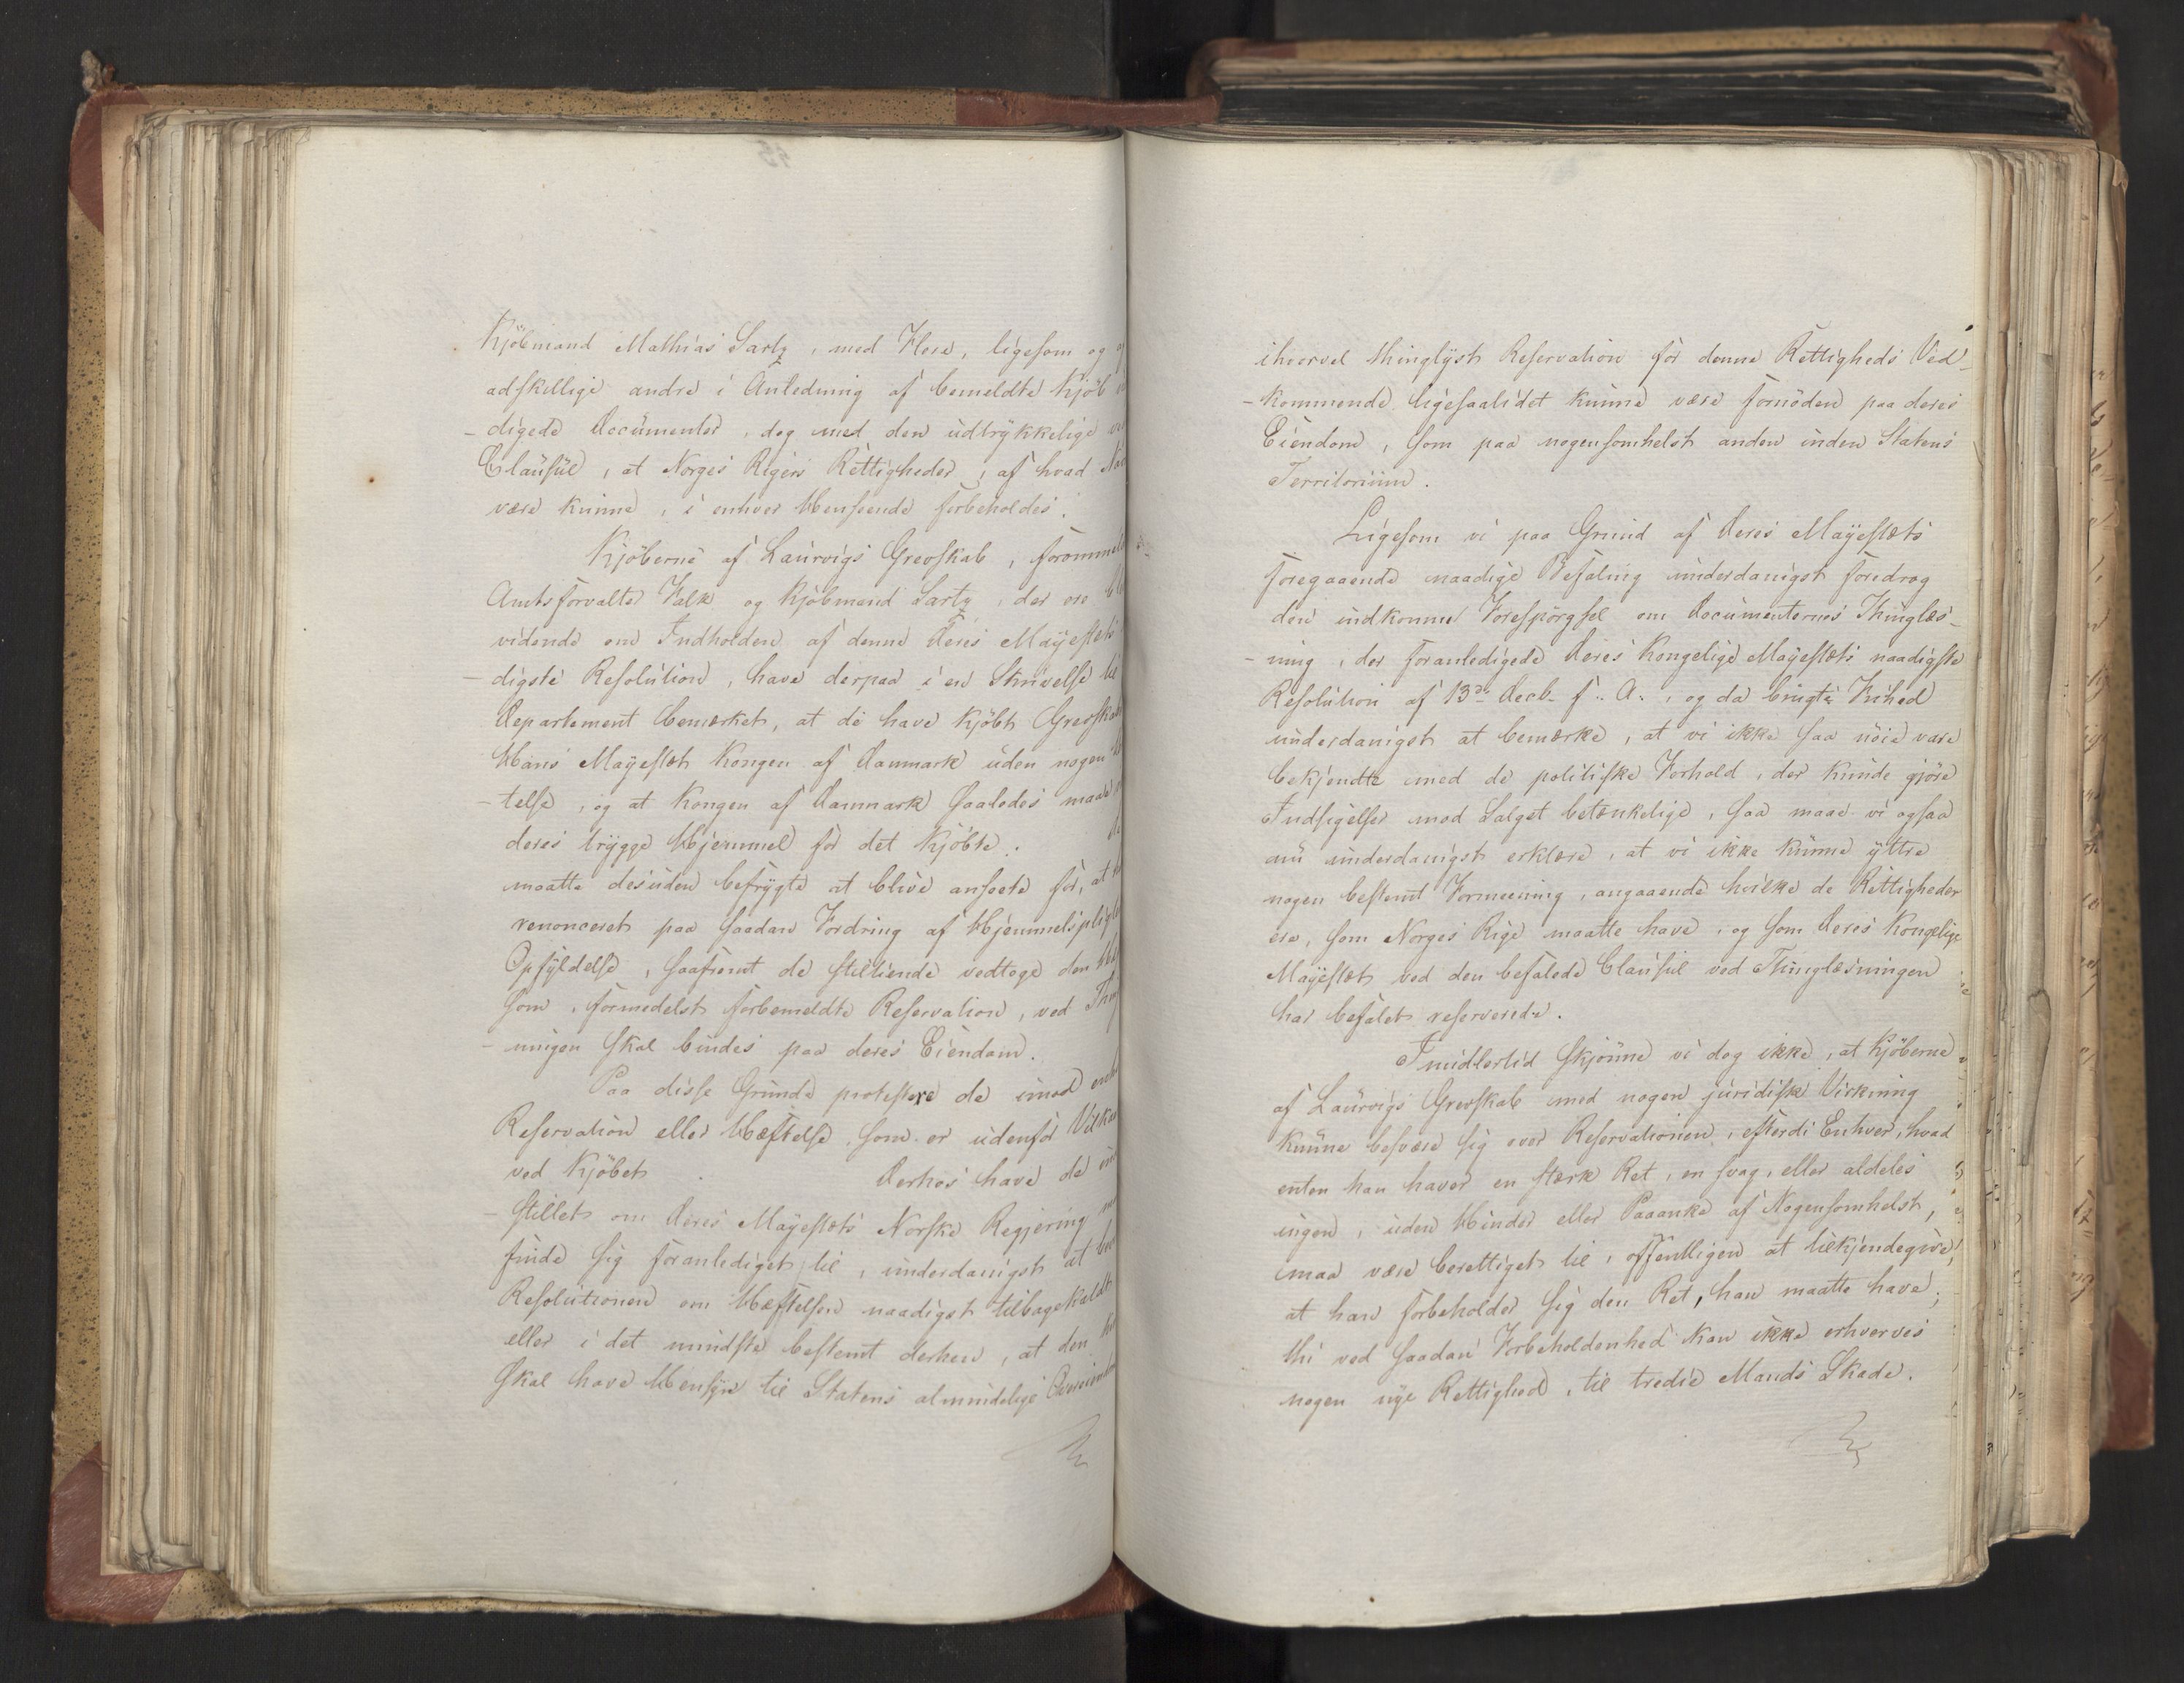 Kjöbmand Mathias Sartz, med Flere, ligesom og
adskellige andre i Anledning af bemeldte Kjöb
-digede Documenter, dog med den udtrykkelige
Clausul, at Norges Riges Rettigheder, af hvad
være kunne, i enhver Henseende forbeholdes.
Kjöberne af Laurvigs Grevskab,
Amtsforvalter Falk og Kjöbmand Sartz, der ere
vidende om Indholden af denne Deres Mayestets
-digste Resolution, have derpaa i en Skrivelse til
Departement bemærket, at de have kjöbt
Hans Mayestet Kongen af Danmark uden nogen
-telse, og at Kongen af Danmark saaledes maa
deres trygge Hjemmel for det Kjöbte.
maatte desuden befrygte at blive anseete for, at
renonceret paa saadan Fordring af
Opfyldelse, saafremt de stiltiende vedtoge den
som, formedelst forbemeldte Reservation, ved
-ningen skal bindes paa deres Eiendom.
Paa disse Grunde protestere de imod
Reservation eller Hæftelse som er udenfor
ved Kjöbet. Derhos have de
-stillet om Deres Mayestets Norske Regjering
finde sig foranlediget til, underdanigst at
Resolutionen om Hæftelsen naadigst tilbagekaldt
eller i det mindste bestemt derhen, at den
skal have Hensyn til Statens almindelige
ihvorvel thinglyst Reservation for denne Rettigheds Ved-
-kommende ligesaalidet kunne være fornöden paa deres
Eiendom, som paa nogensomhelst anden inden Statens
Territorium.
Ligesom vi paa Grund af Deres Mayestets
foregaaende naadige Befaling underdanigst foredrog
den indkomne Forespörgsel om Documenternes Thinglæs-
-ning, der foranledigede Deres Kongelige Mayestets naadigste
Resolution af 13de Decb. f. A., og da brugte Frihed
underdanigst at bemærke, at vi ikke saa nöie vare
bekjendte med de politiske Forhold, der kunde gjöre
Indsigelser mod Salget betænkelige, saa maae vi ogsaa
nu underdanigst erklære, at vi ikke kunne yttre
nogen bestemt Formeening, angaaende hvilke de Rettigheder
ere, som Norges Rige maatte have, og som Deres Kongelige
Mayestet ved den befalede Clausul ved Thinglæsningen
har befalet reserverede.
Imidlertid skjönne vi dog ikke, at Kjöberne
af Laurvigs Grevskab med nogen juridisk Virkning
kunne besvære sig over Reservationen, efterdi Enhver, hvad
enten han haver en stærk Ret, en svag, eller aldeles
ingen, uden Hinder eller Paaanke af Nogensomhelst,
maa være berettiget til, offentligen at tilkjendegive,
at han forbeholder sig den Ret, han maatte have;
thi ved saadan Forbeholdenhed kan ikke erhverves
nogen nye Rettighed, til tredie Mands Skade.